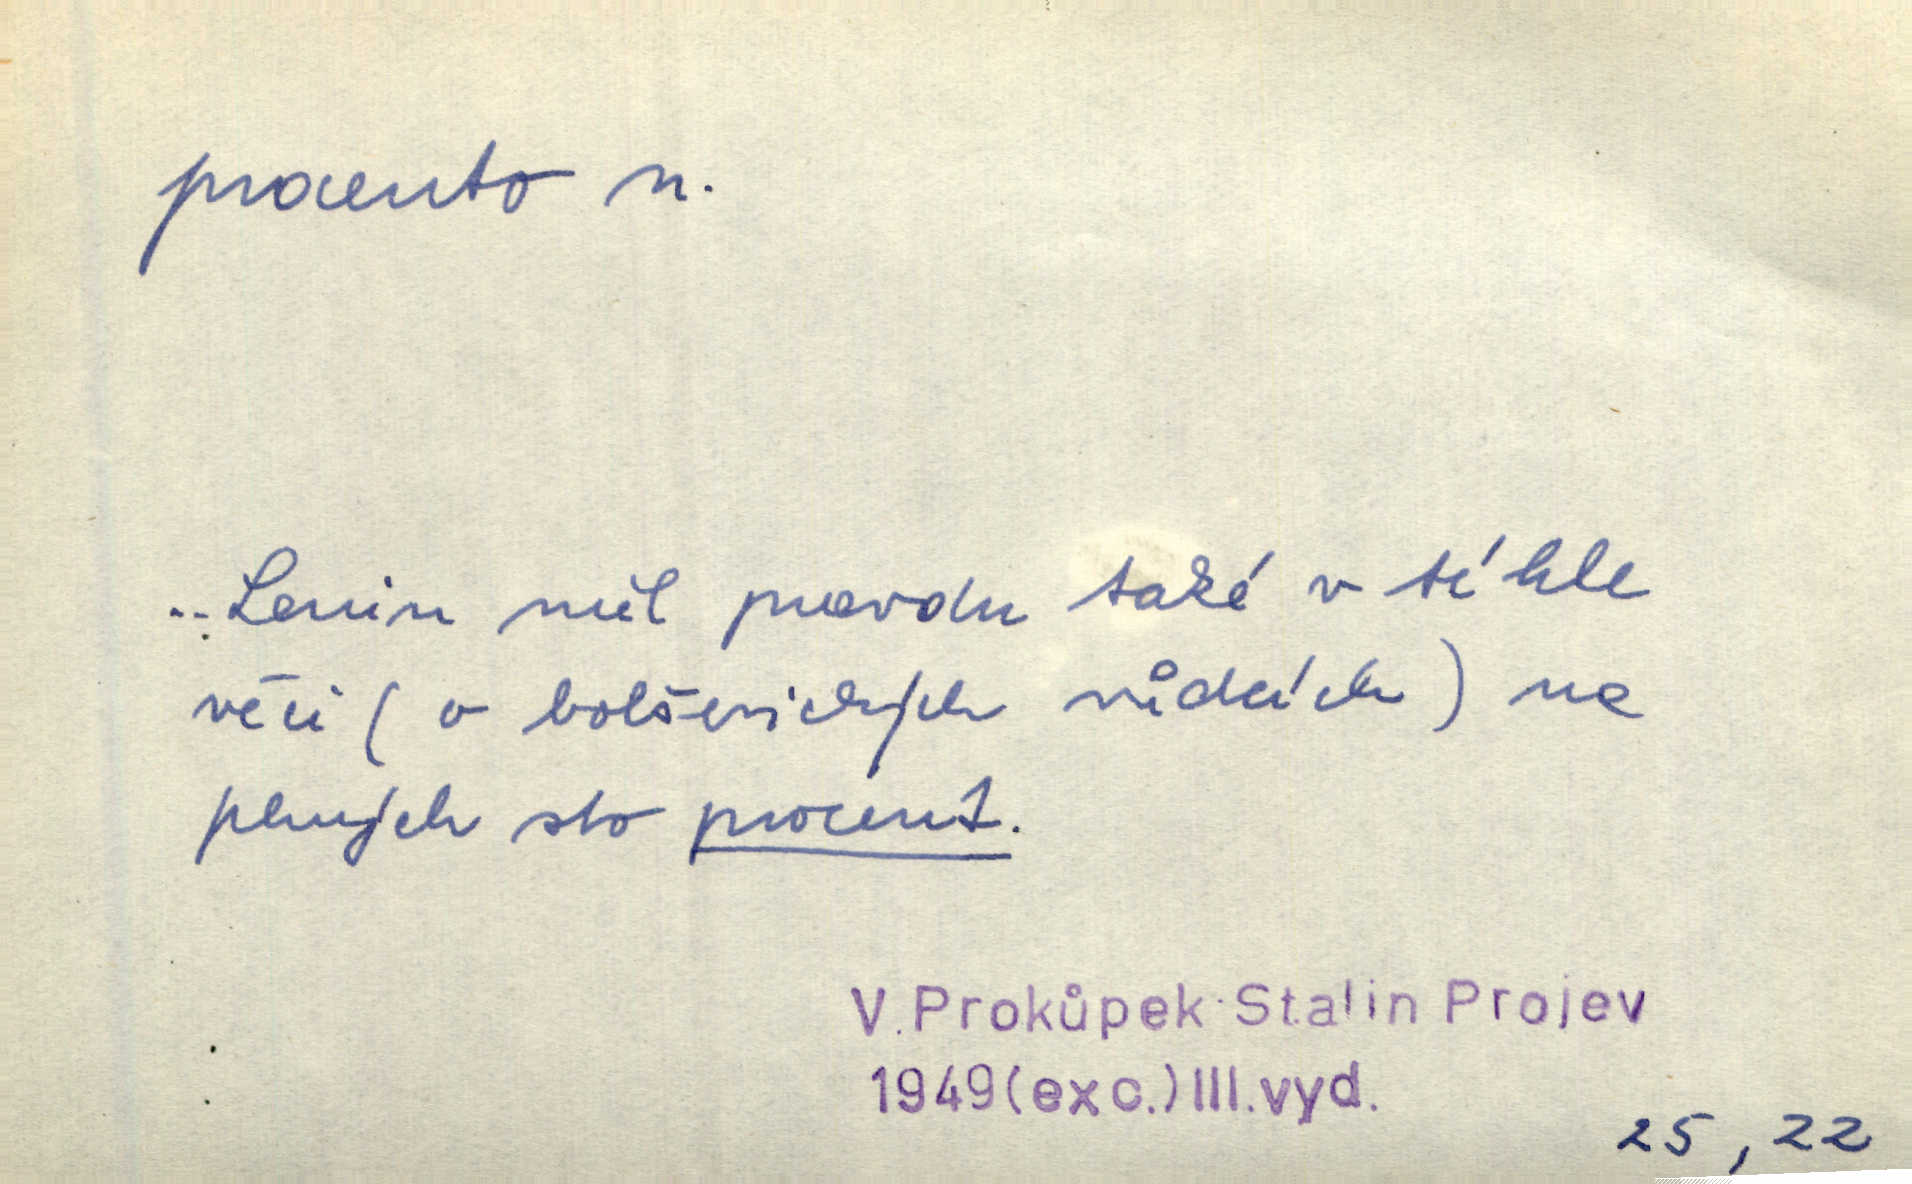 procento n.
..Lenin měl pravdu také v téhle
věci (o bolševických vůdcích) na
plných sto procent.
V. Prokůpek Stalin Projev
1949 (exc.) III. vyd.
25, 22